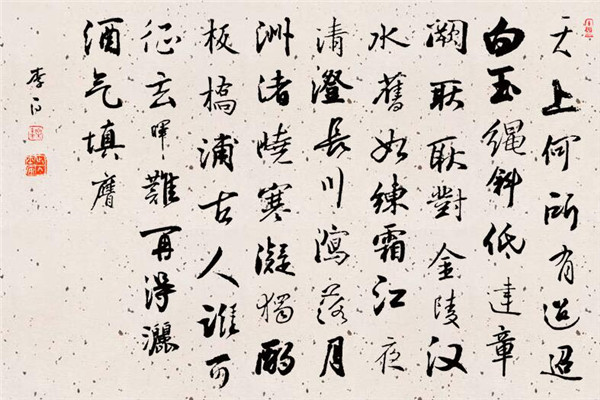 天上何所有迢迢
白玉繩斜低建章
闕耿耿對金陵汉
水舊如練霜江夜
清澄長川瀉落月
洲渚曉寒凝獨酌
板橋浦古人誰可
征玄暉難再得灑
酒气填膺
李白